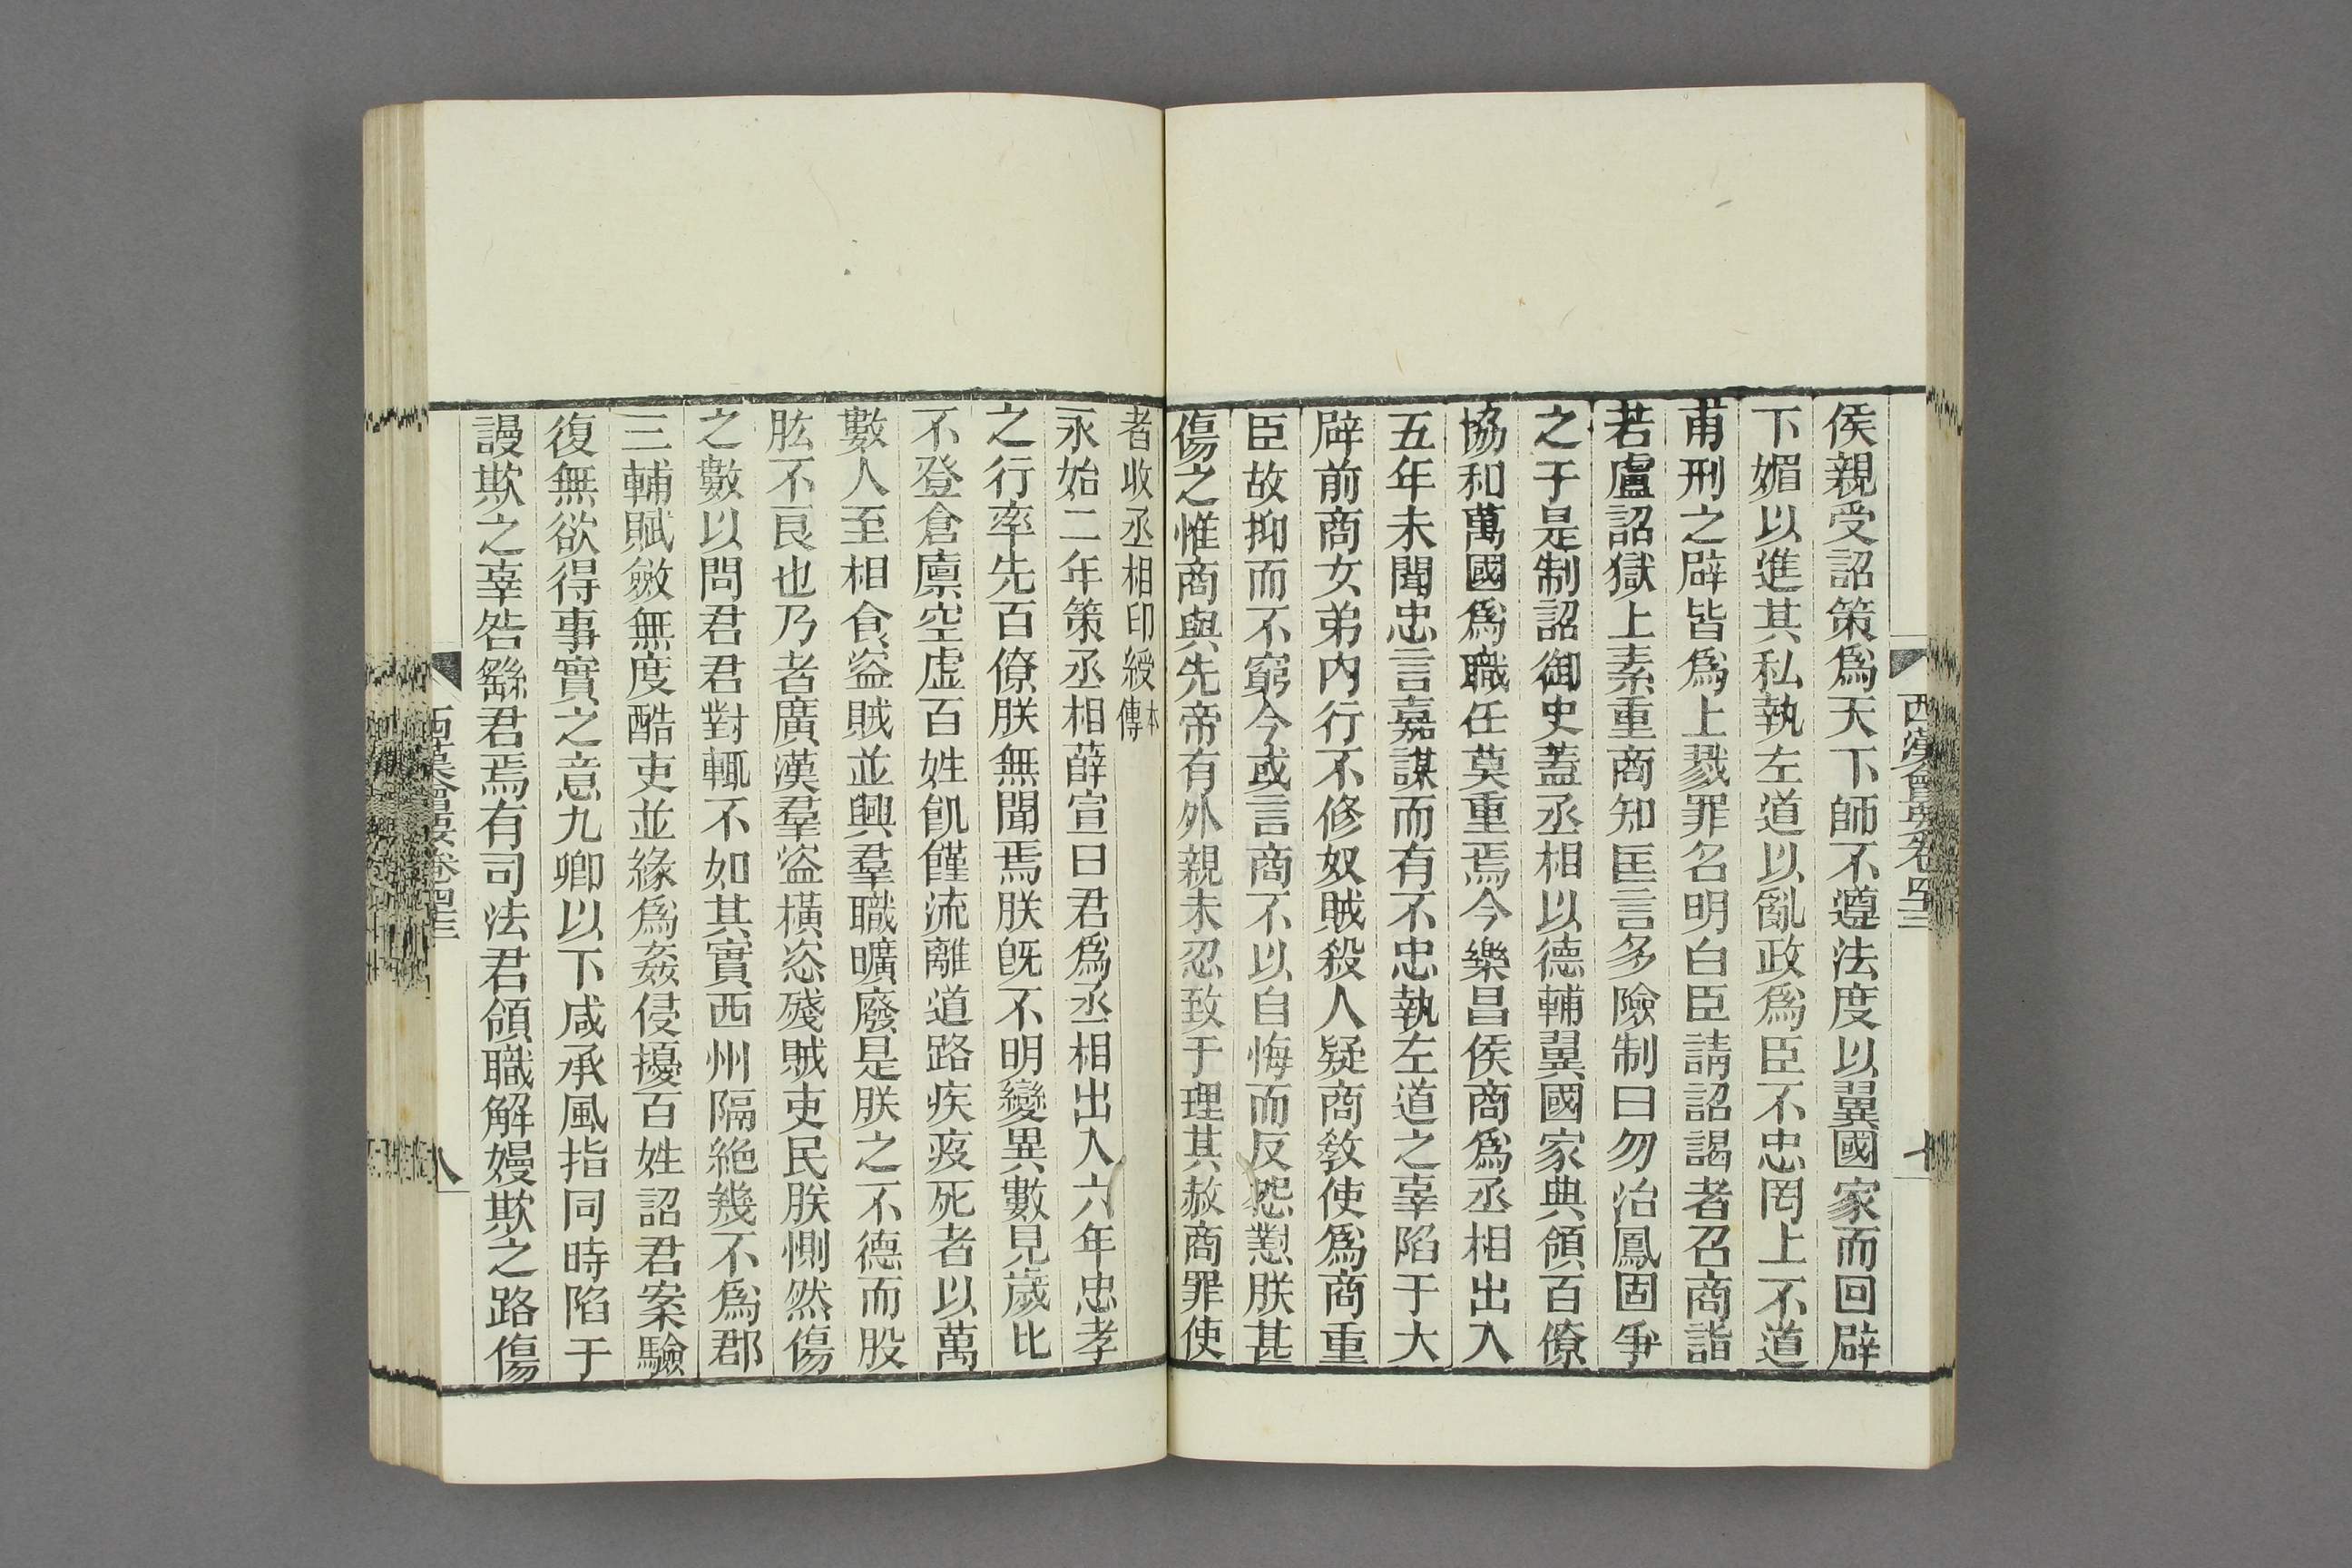 西漢會要卷四十三
七
侯親受詔策爲天下師不遵法度以翼國家而回辟
下媚以進其私執左道以亂政爲臣不忠罔上不道
甫刑之辟皆爲上戮罪名明白臣請詔謁者召商詣
若盧詔獄上素重商知匡言多險制曰勿治鳳固爭
之于是制詔御史蓋丞相以德輔翼國家典領百僚
協和萬國爲職任莫重焉今樂昌侯商爲丞相出入
五年未聞忠言嘉謀而有不忠執左道之辜陷于大
辟前商女弟内行不修奴賊殺人疑商敎使爲商重
臣故抑而不窮今或言商不以自悔而反怨懟朕甚
傷之惟商與先帝有外親未忍致于理其赦商罪使
者收丞相印綬本傳
永始二年策丞相薛宣曰君爲丞相出入六年忠孝
之行率先百僚朕無聞焉朕旣不明變異數見歲比
不登倉廩空虛百姓飢饉流離道路疾疫死者以萬
數人至相食盜賊並興羣職曠廢是朕之不德而股
肱不良也乃者廣漢羣盜橫恣殘賊吏民朕惻然傷
之數以問君君對輒不如其實西州隔絶幾不爲郡
三輔賦斂無度酷吏並緣爲姦侵擾百姓詔君案驗
復無欲得事實之意九卿以下咸承風指同時陷于
謾欺之辜咎繇君焉有司法君領職解嫚欺之路傷
西漢會要卷四十三
八